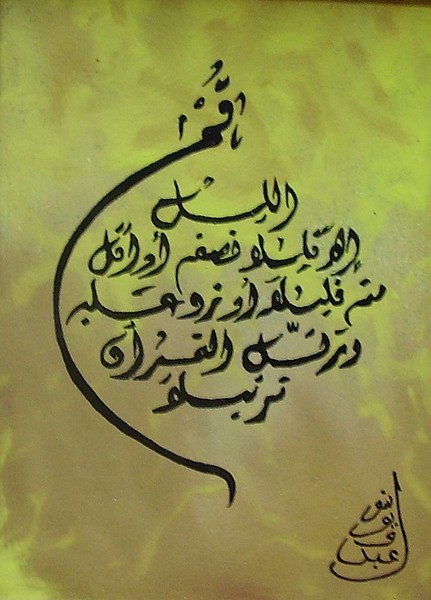 قُمْ
الليل
إلا قليلا نصفه أو انقص
منه قليلا أو زد عليه
ورتّل القرآن
ترتيلا